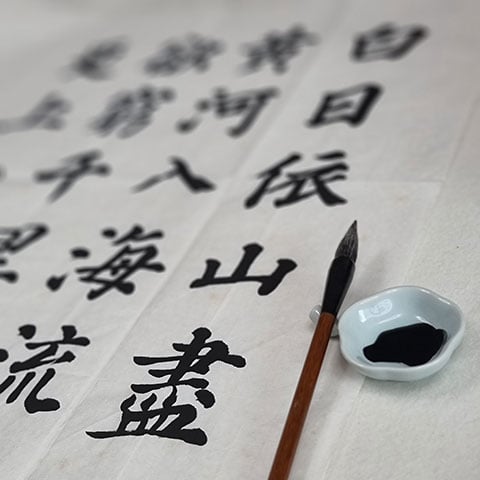 白日依山盡
黃河入海流
欲窮千里
更上